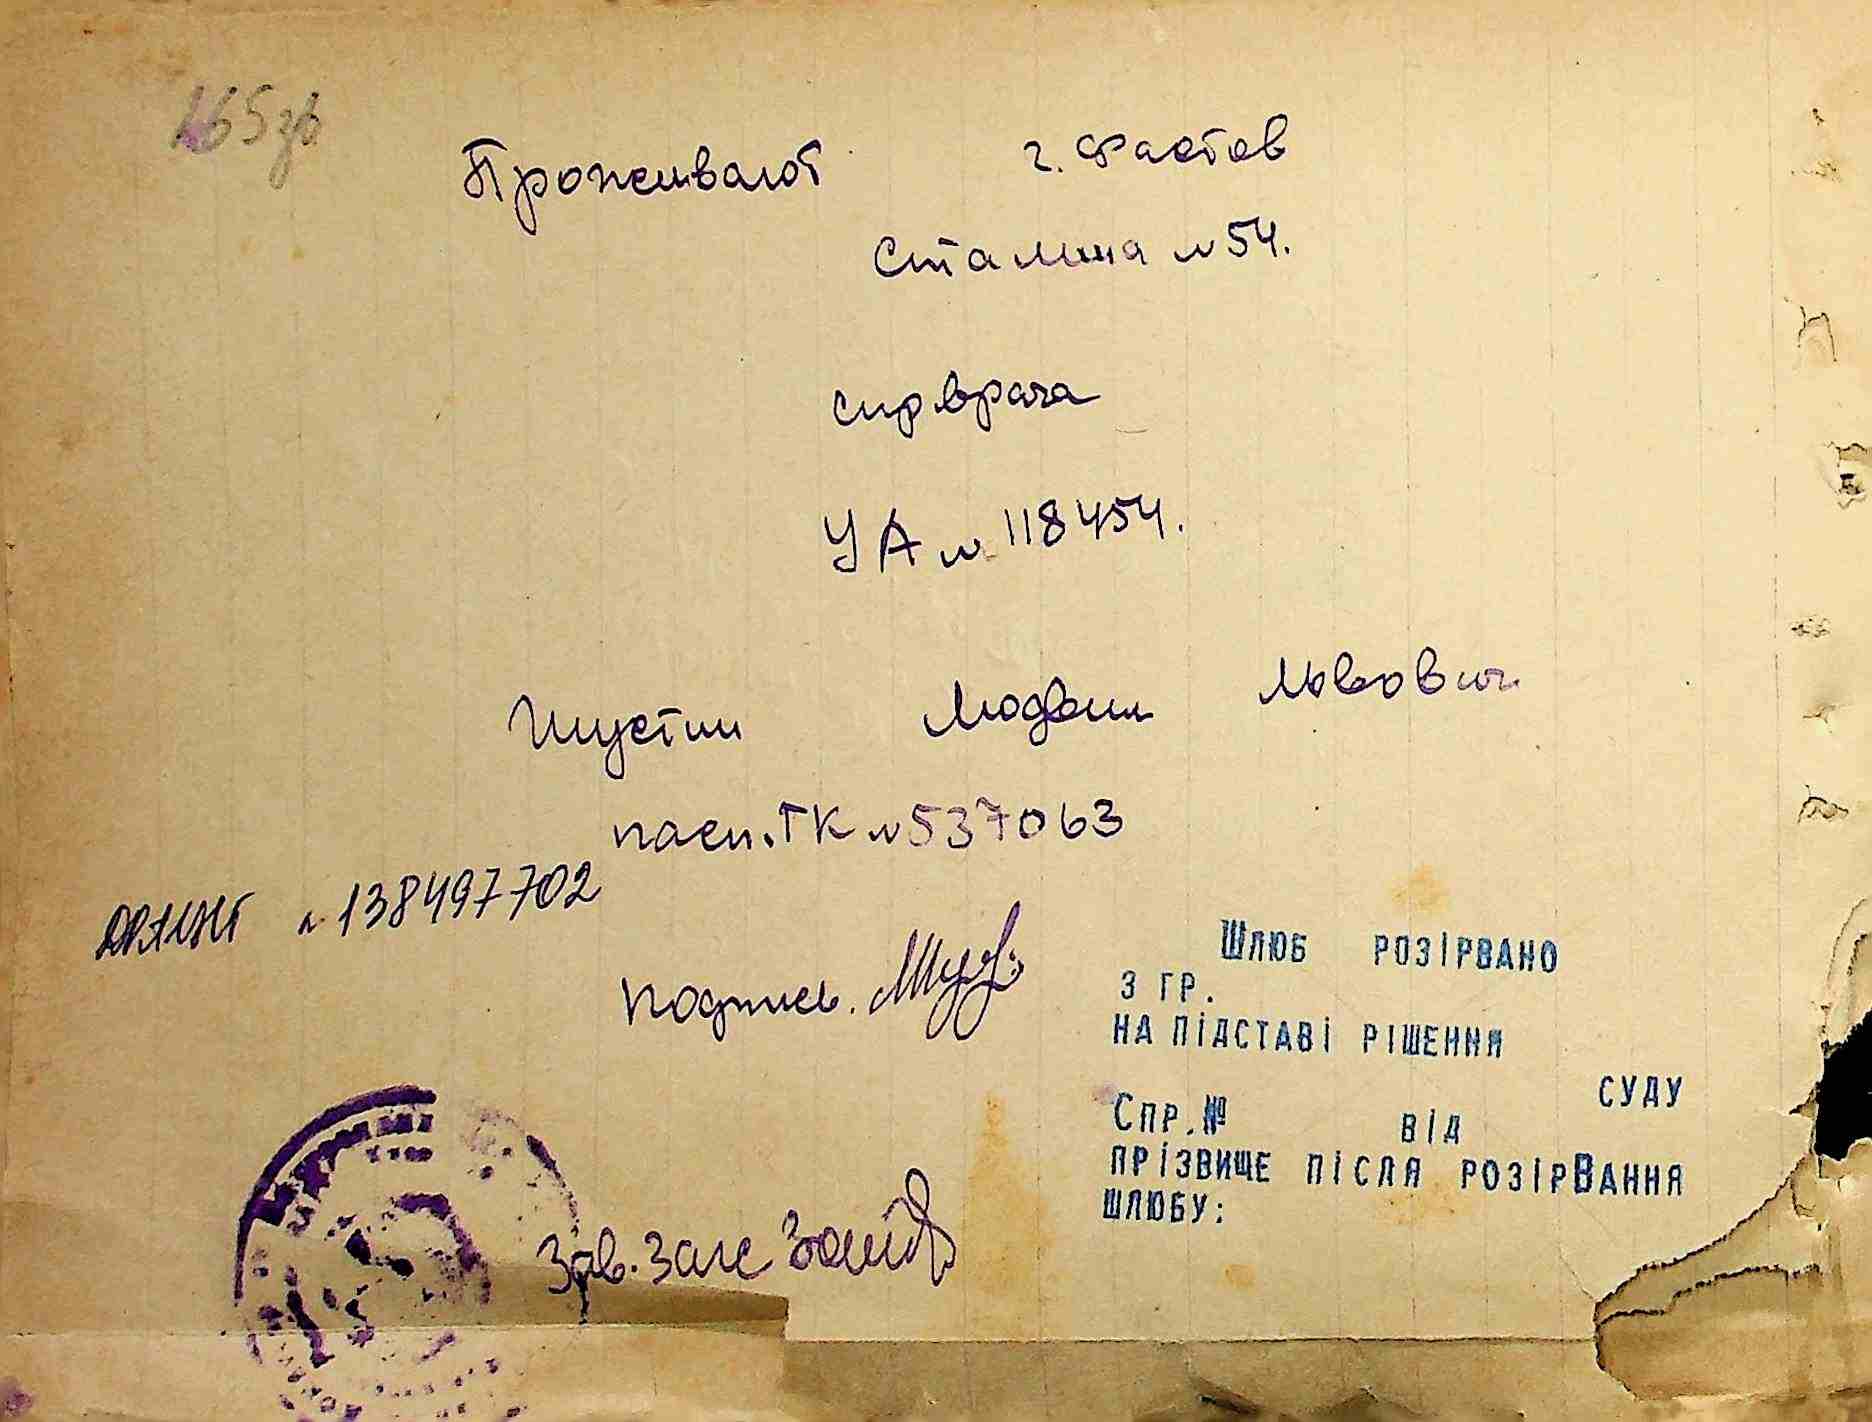 165зв
Проживают г. Фастов
Сталина №54.
спр врача
УА № 118454.
Шустин Людвиг Львович
пасп. ГК №537063
ДРАЦСГ № 138497702
подпись.
Шлюб розірвано
з гр.
на підставі рішення
суду
Спр.№ від
прізвище після розірвання
шлюбу:
Зав. Загс